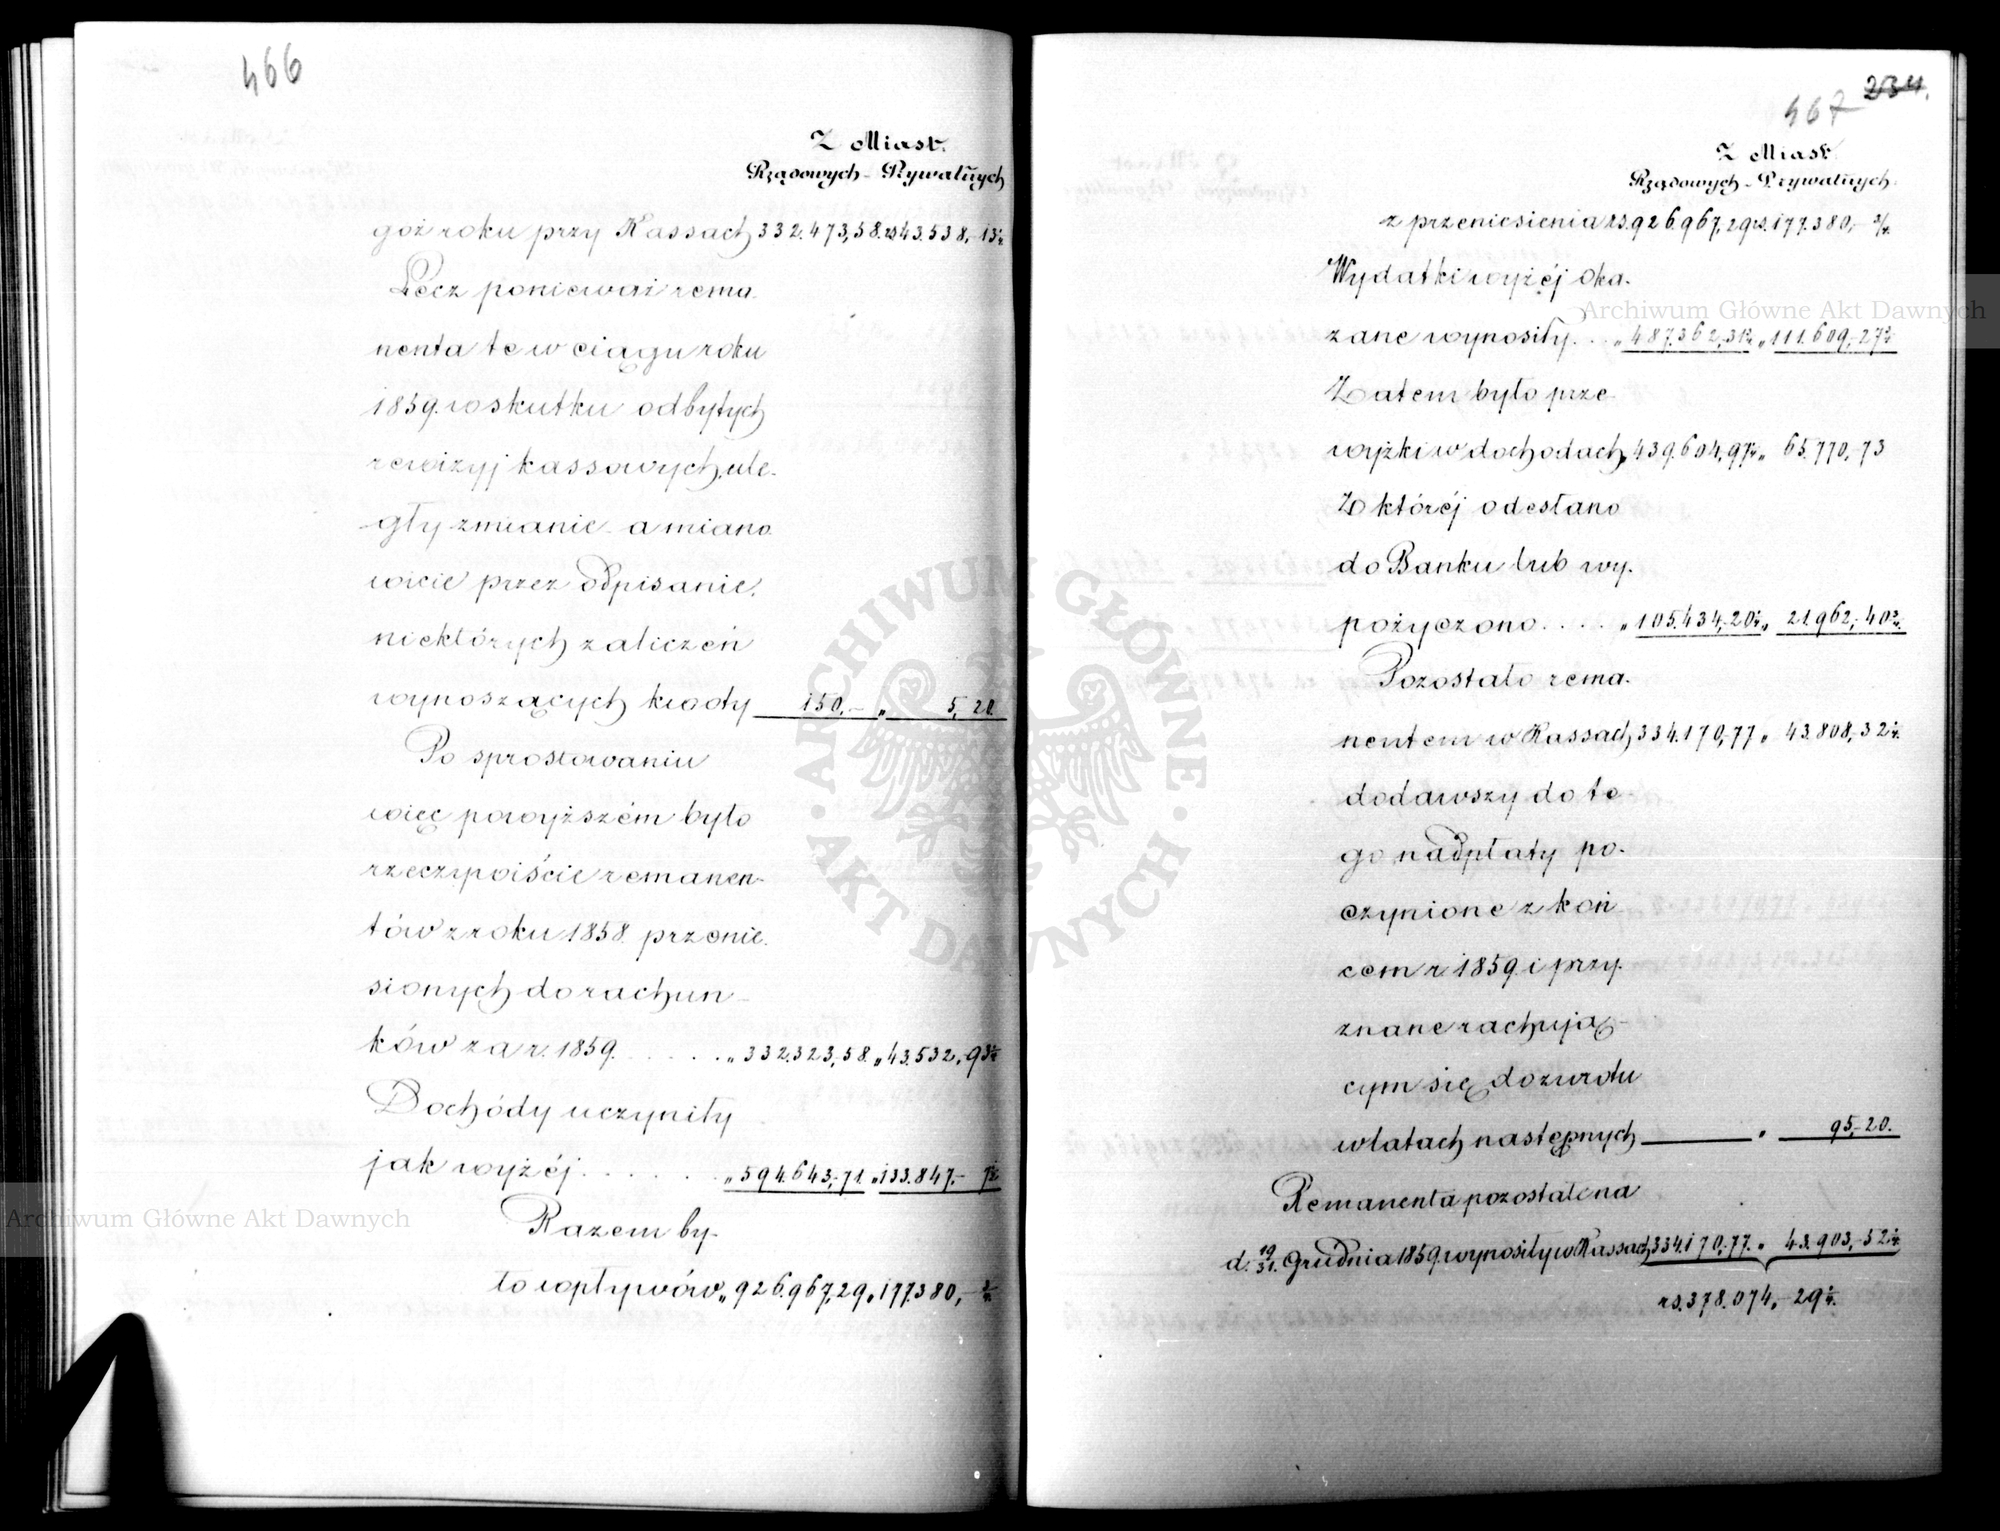 466
Z Miast.
Rządowych - Prywatnych
goż roku przy Kassach 332.473,58. rs 43.538,-13½
Lecz ponieważ rema
nenta te w ciągu roku
1859. wskutku odbytych
rewizyj kassowych, ule-
gły zmianie a miano
wicie przez odpisanie,
niektórych zaliczeń
wynoszących kwoty 150,- " 5,20.
Po sprostowaniu
więc powyższém było
rzeczywiście remanen-
tów z roku 1858 przenie.
sionych do rachun-
ków za r. 1859. . . . . . " 332.323,58. " 43.532,-93½
Dochódy uczyniły
jak wyżéj. . . . . . . " 594.643,-71. " 133.847,-
Razem by-
ło wpływów " 926.967,29 " 177.380,-
467 234.
Z Miast.
Rządowych - Prywatnych.
z przeniesienia rs. 926.967,29 rs. 177.380,-
Wydatki wyżéj oka.
zane wynosiły. . . " 487.362,-31½ " 111.609,-27¾
Zatem było prze
wyżki w dochodach " 439.604,97½ " 65.770,-73
Z któréj odesłano
do Banku lub wy.
pożyczono. . . . " 105.434,-20½ " 21.962,-40¾
Pozostało rema.
nentem w Kassach 334.170,-77 " 43.808,-32¼
dodawszy do te-
go nadpłaty po-
czynione z koń
cem r. 1859. i przy.
znane rachują-
cym się do zwrotu
w latach następnych " 95,-20.
Remanenta pozostałe na
d. 19/31. Grudnia 1859. wynosiły w Kassach 334.170,-77. " 43.903,-52¼
rs. 378.074,-29¼.
Archiwum Główne Akt Dawnych
Archiwum Główne Akt Dawnych
· ARCHIWUM GŁÓWNE · AKT DAWNYCH